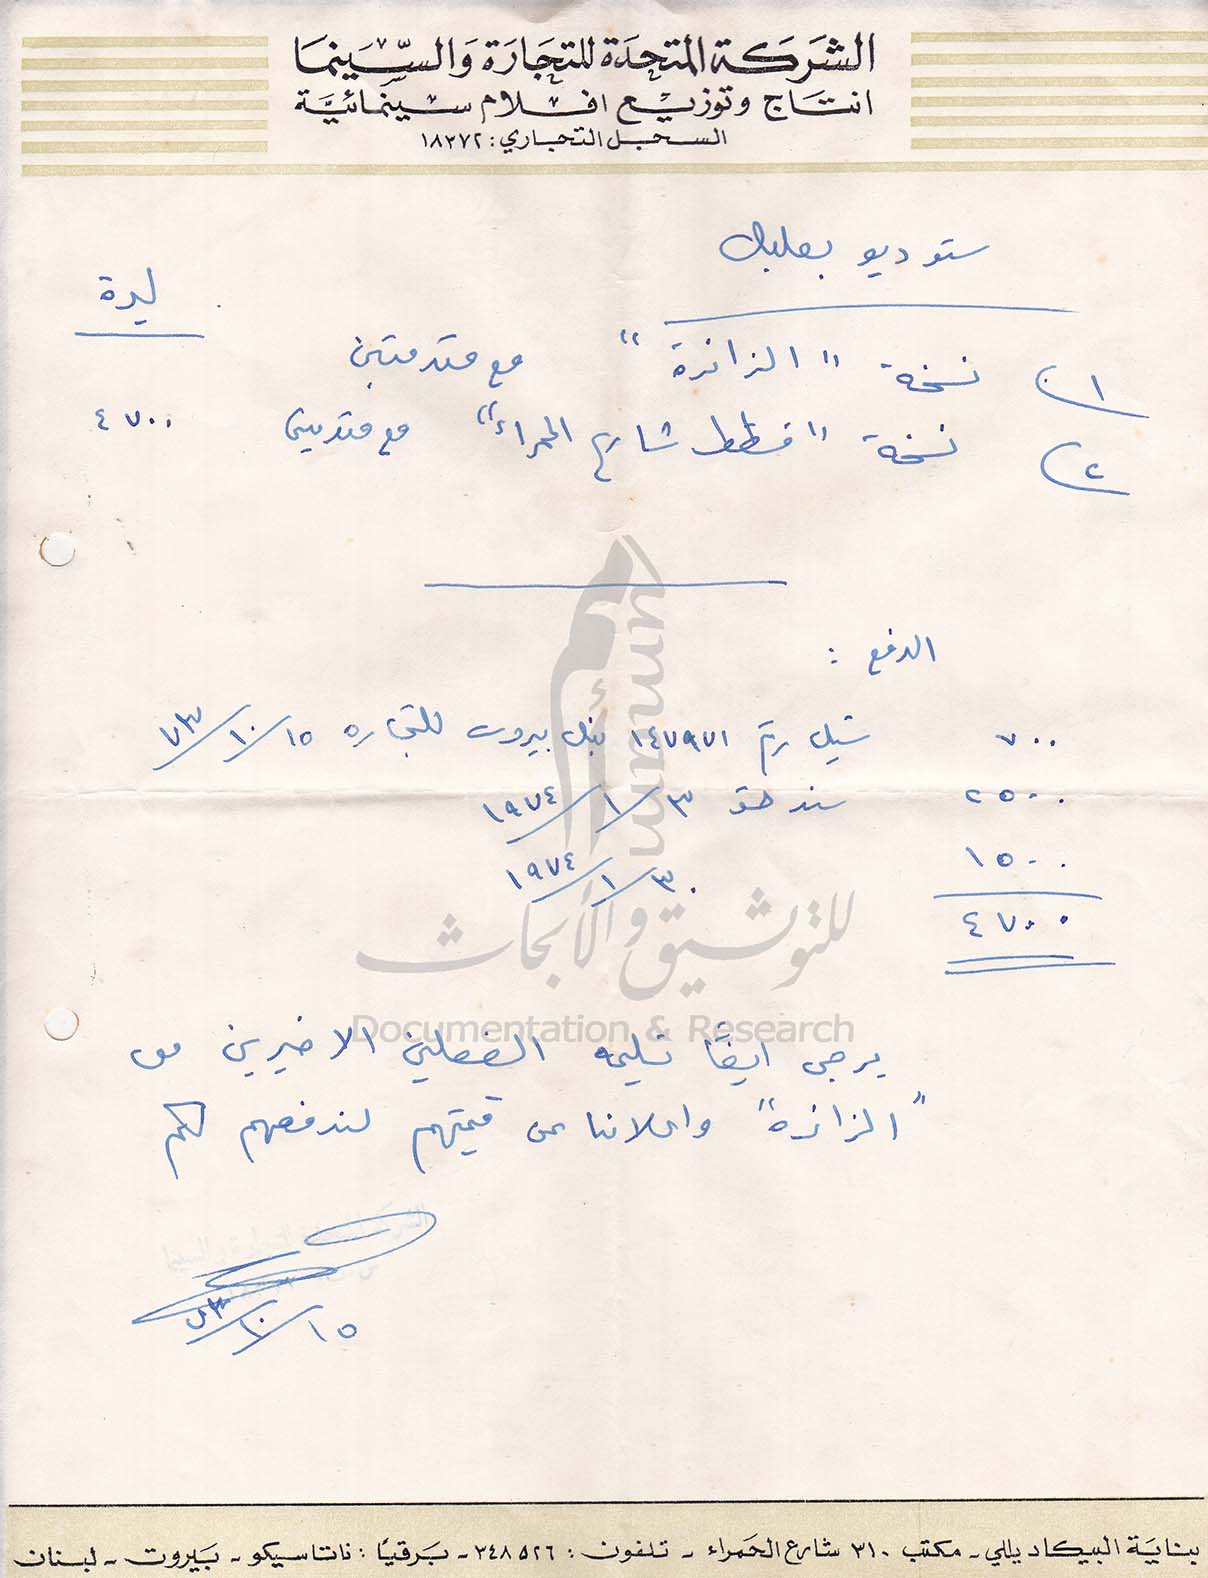 الشركة المتحدة للتجارة والسينما
انتاج وتوزيع افلام سينمائية
السجل التجاري: ١٨٣٧٢
ستوديو بعلبك
ليرة
١) نسخة "الزائرة" مع مقدمتين
٢) نسخة "قطط شارع الحمراء" مع مقدمتين ٤٧٠٠
الدفع :
٧٠٠ شيك رقم ١٤٧٩٧١ بنك بيروت للتجاره ١٥/١٠/٧٣
٢٥٠٠ سند حق ٣/١/١٩٧٤
١٥٠٠ ٣٠/١/١٩٧٤
٤٧٠٠
أمم
umam
للتوثيق والأبحاث
Documentation & Research
يرجى ايضًا تسليمه الفصلين الاخيرين من
"الزائرة" واعلامنا عن قيمتهم لندفعهم لكم
الشركة المتحدة للتجارة والسينما
١٥/١٠/٧٣
بناية البيكاديللي - مكتب ٣١٠ شارع الحمراء - تلفون : ٣٤٨٥٢٦ - برقيًا : فانتاسيكو - بيروت - لبنان